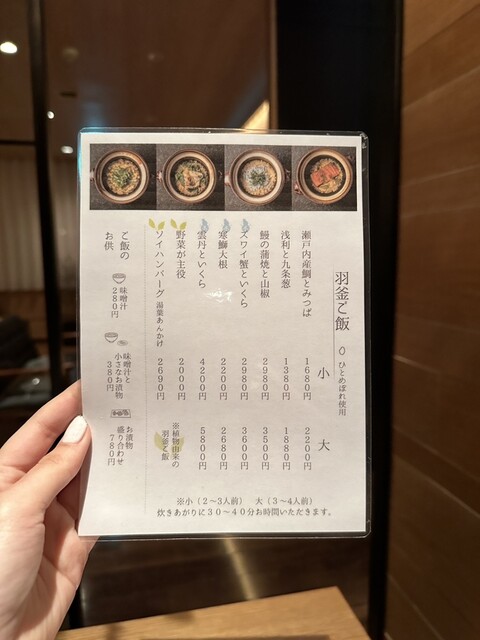 羽釜ご飯 ひとめぼれ使用
小
大
瀬戸内産鯛とみつば 1680円 2200円
浅利と九条葱 1380円 1880円
鰻の蒲焼と山椒 2980円 3500円
ズワイ蟹といくら 2980円 3600円
寒鰤大根 2200円 2680円
雲丹といくら 4200円 5800円
野菜が主役 2000円
ソイハンバーグ 湯葉あんかけ 2690円
※植物由来の
羽釜ご飯
ご飯の
お供
味噌汁
280円
味噌汁と
小さなお漬物
380円
お漬物
盛り合わせ
780円
※小（２～３人前） 大（３～４人前）
炊きあがりに３０～４０分お時間いただきます。